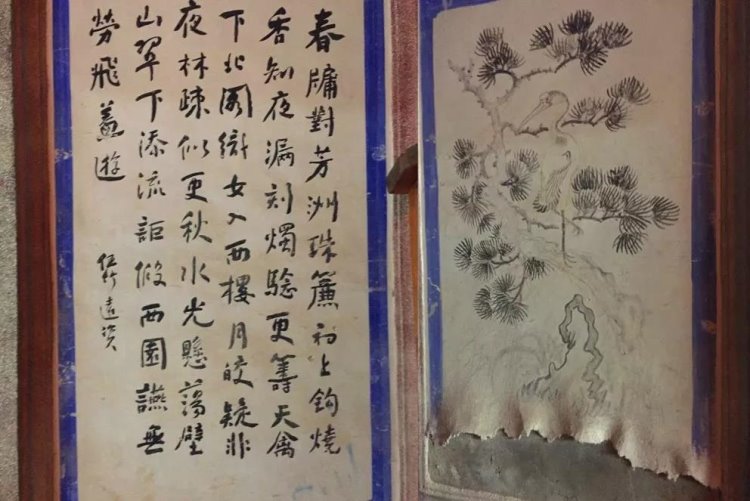 春牖對芳洲珠簾初上鈎燒
香知夜漏刻燭驗更籌天禽
下北閣織女入西樓月皎疑非
夜林疎似更秋水光懸蕩壁
山翠下添流詎假西園讌無
勞飛蓋遊